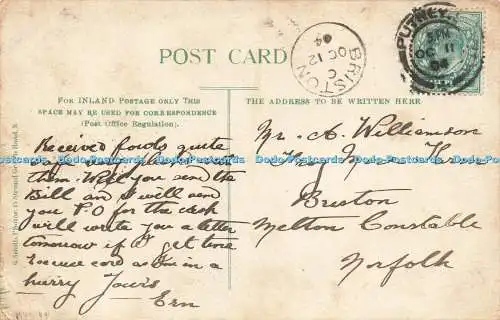 POST CARD
FOR INLAND POSTAGE ONLY THIS
SPACE MAY BE USED FOR CORRESPONDENCE
(Post Office Regulation).
THE ADDRESS TO BE WRITTEN HERE
PUTNEY
11
BRISTON
C
OC 12
04
Received fowls quite
them. Will you send the
Bill and I will send
you P.O for the cash
will write you a letter
tomorrow if I get time
Excuse card as I'm in a
hurry Yours
Ern
Mr. A. Williamson
Briston
Melton Constable
Norfolk
Dodo-Postcards Dodo-Postcards Dodo-Postcards Dodo-Postcards Dodo-Postcards